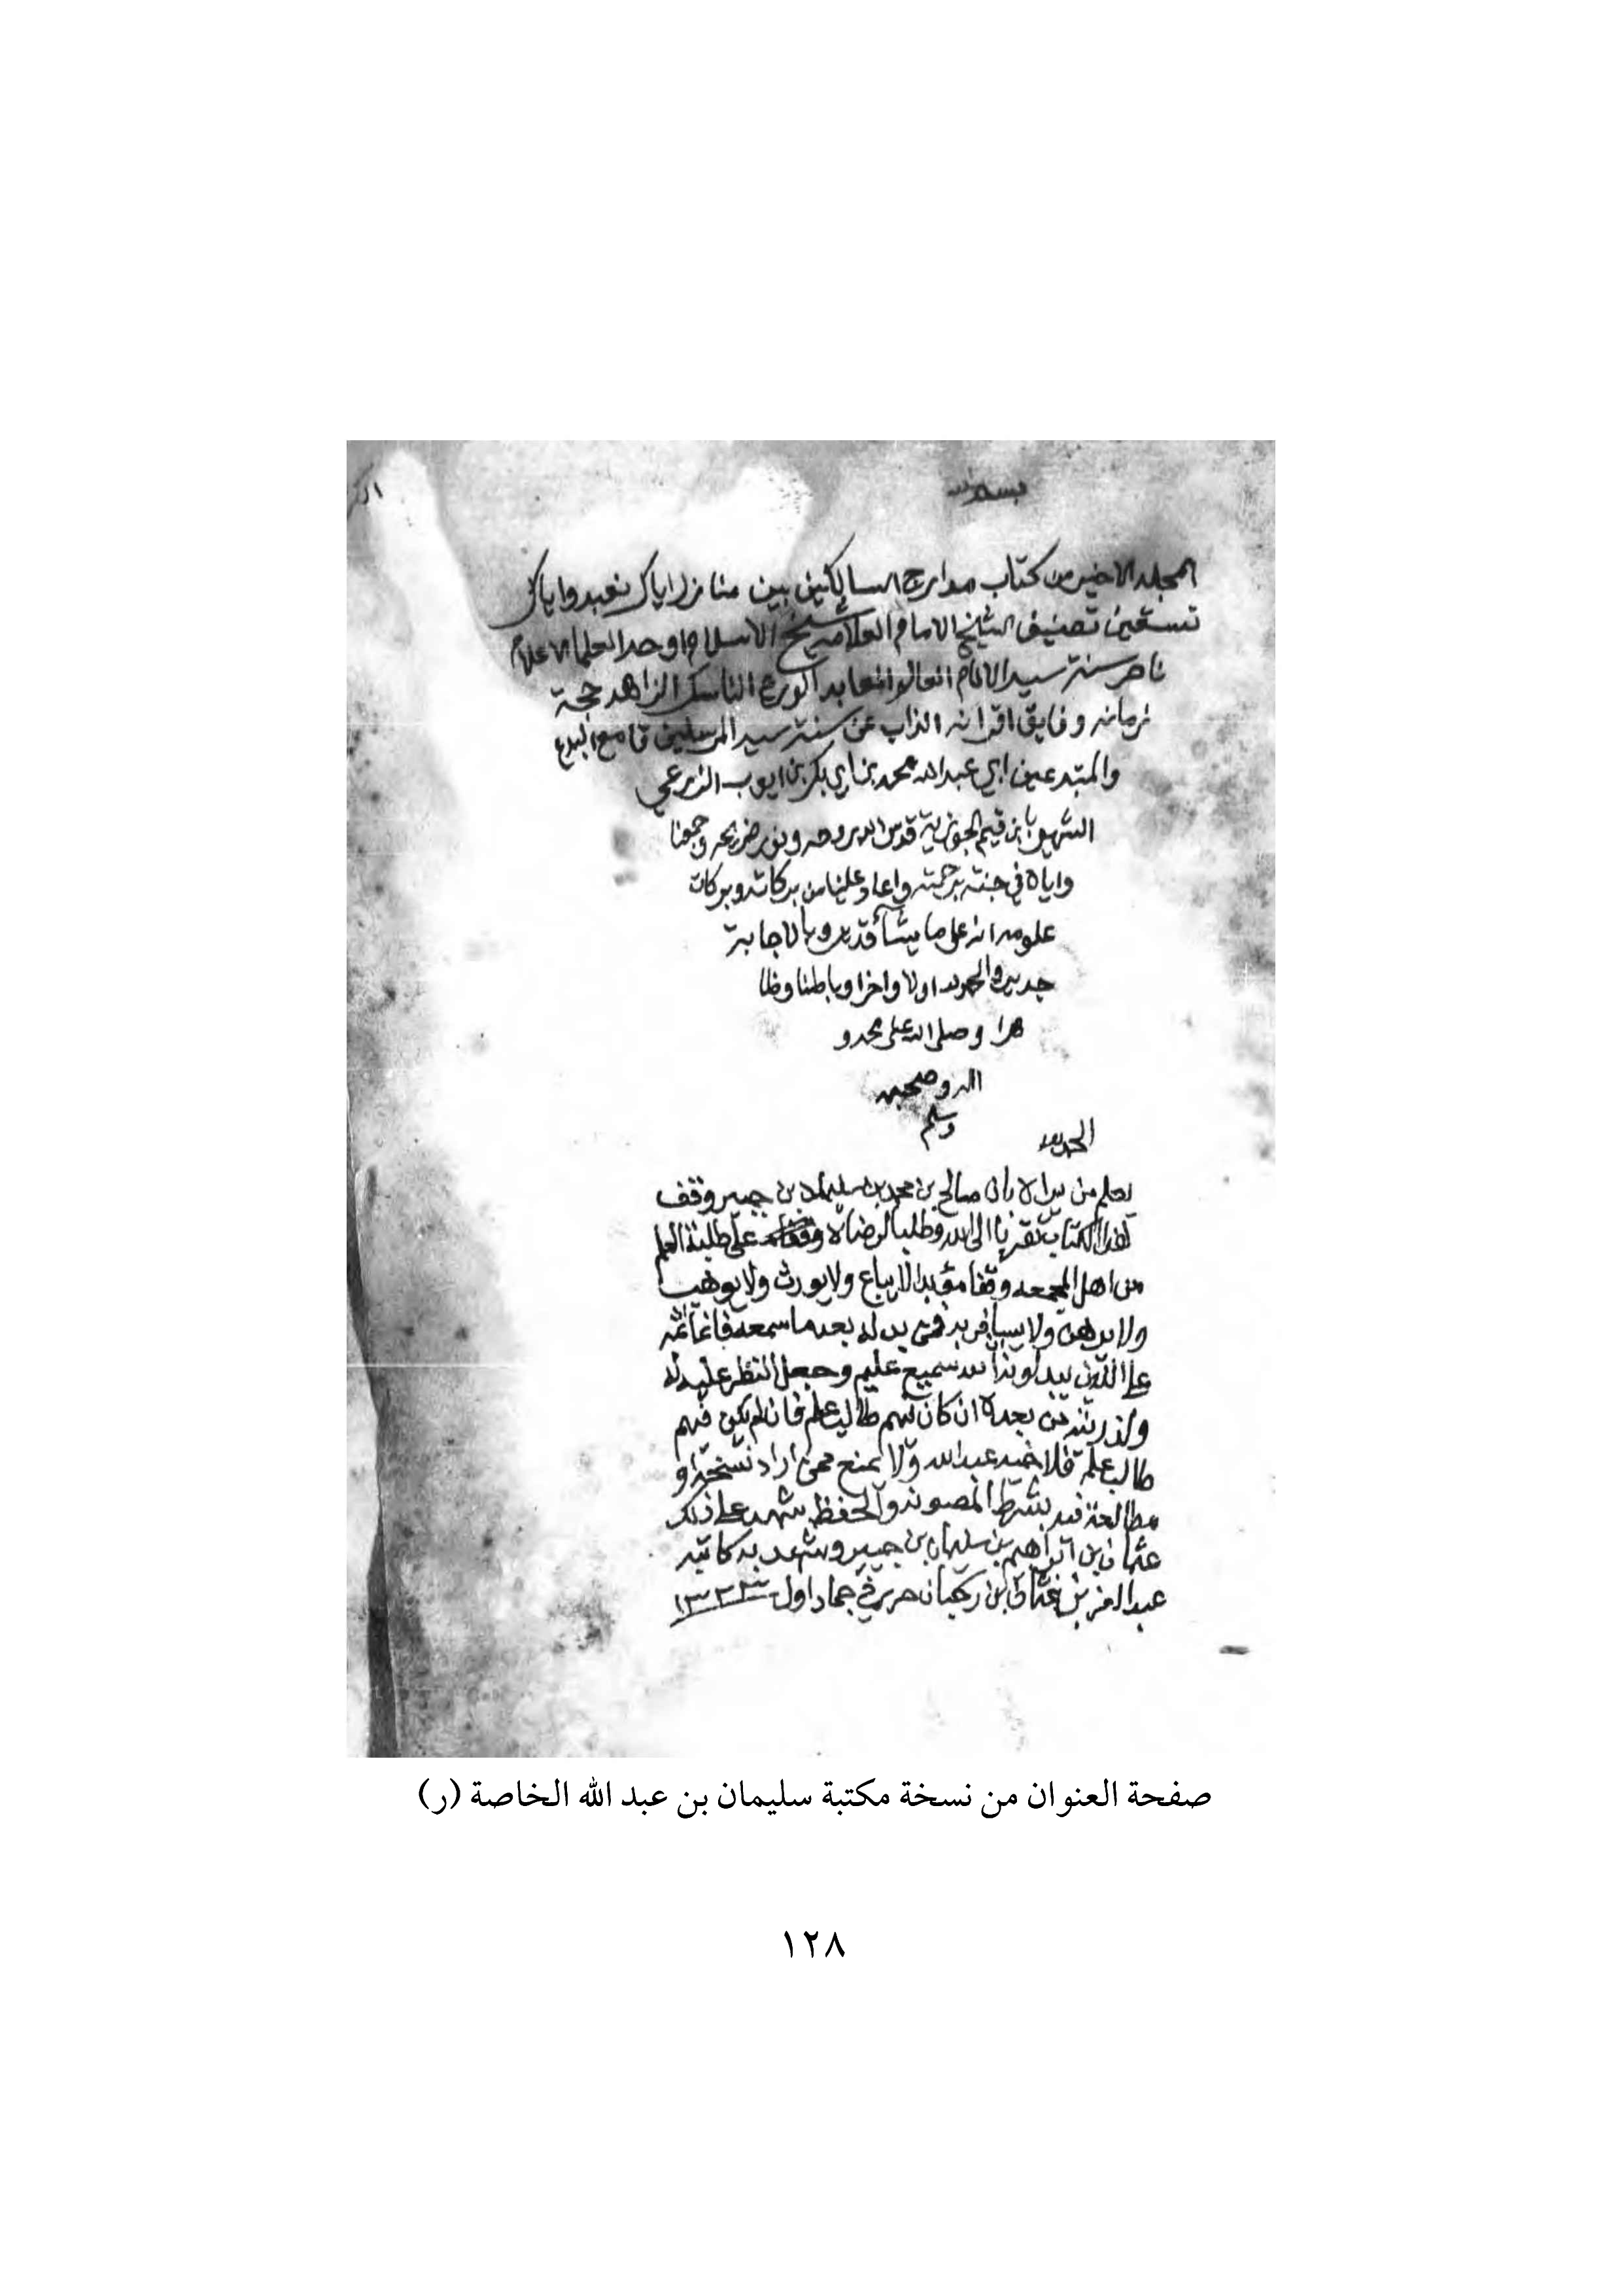 بسم الله
المجلد الاخير من كتاب مدارج السالكين بين منازل اياك نعبد واياك
نستعين تصنيف الشيخ الامام العلامة شيخ الاسلام اوحد العلما الاعلام
ناصر سنة سيد الانام العالم العابد الورع الناسك الزاهد حجة
زمانه وفايق اقرانه الذاب عن سنة سيد المرسلين قامع البدع
والمبتدعين ابي عبد الله محمد بن ابي بكر بن ايوب الزرعي
الشهير بابن قيم الجوزية قدس الله روحه ونور ضريحه وجمعنا
واياه في جنته برحمته واعاد علينا من بركاته وبركات
علومه انه على ما يشأ قدير وبالاجابة
جدير والحمد لله اولا واخرا وباطنا وظا
هرا وصلى الله على محمد و
اله وصحبه
وسلم
الحمد لله
يعلم من يراه بان صالح بن محمد بن سليمان بن جبير وقف
هذا الكتاب تقربا الى الله وطلبا لرضاه على طلبة العلم
من اهل المجمعه وقفا مؤبدا لا يباع ولا يورث ولا يوهب
ولا يرهن ولا يسافر به فمن بدله بعد ما سمعه فانما اثمه
على الذين يبدلونه ان الله سميع عليم وجعل النظر عليه له
ولذريته من بعده ان كان فيهم طالب علم فان لم يكن فيهم
طالب علم فلاخيه عبد الله ولا يمنع ممن اراد نسخه او
مطالعة فيه بشرط الصونه والحفظ شهد على ذلك
عثمان بن ابراهيم بن سليمان بن جبير وشهد به كاتبه
عبد العزيز بن بن ركبان حرر في جماد اول ١٣٢٣
صفحة العنوان من نسخة مكتبة سليمان بن عبد الله الخاصة (ر)
١٢٨